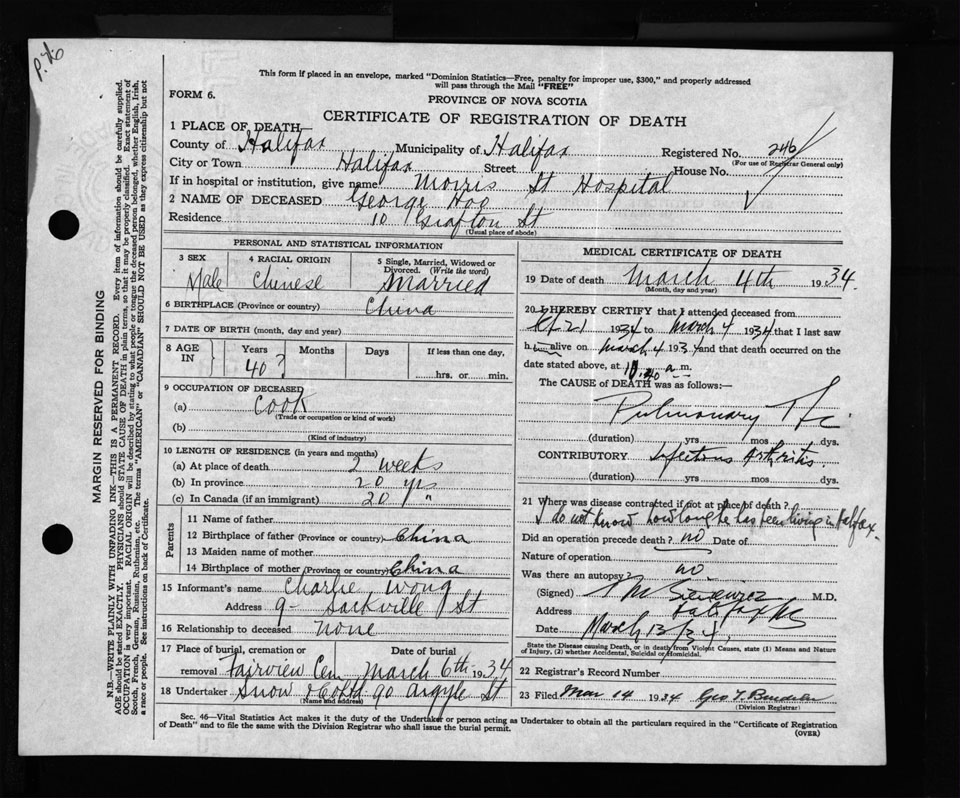 p. 76
This form if placed in an envelope, marked "Dominion Statistics—Free, penalty for improper use, $300," and properly addressed
will pass through the Mail "FREE"
FORM 6.
PROVINCE OF NOVA SCOTIA
CERTIFICATE OF REGISTRATION OF DEATH
1 PLACE OF DEATH—
County of Halifax Municipality of Halifax Registered No. 246
(For use of Registrar General only)
City or Town Halifax Street House No.
If in hospital or institution, give name Morris St Hospital
2 NAME OF DECEASED George Hoo
Residence 10 Grafton St
(Usual place of abode)
PERSONAL AND STATISTICAL INFORMATION
3 SEX 4 RACIAL ORIGIN 5 Single, Married, Widowed or
Divorced. (Write the word)
Male Chinese Married
6 BIRTHPLACE (Province or country) China
7 DATE OF BIRTH (month, day and year)
8 AGE IN Years Months Days If less than one day,
40? hrs. or min.
9 OCCUPATION OF DECEASED
(a) Cook
(Trade or occupation or kind of work)
(b)
(Kind of industry)
10 LENGTH OF RESIDENCE (in years and months)
(a) At place of death 2 weeks
(b) In province 20 yrs
(c) In Canada (if an immigrant) 20 "
Parents
11 Name of father
12 Birthplace of father (Province or country) China
13 Maiden name of mother
14 Birthplace of mother (Province or country) China
15 Informant's name Charlie Wong
Address 9- Sackville St
16 Relationship to deceased none
17 Place of burial, cremation or Date of burial
removal Fairview Cem March 6th 1934
18 Undertaker Snow & Co Ltd 90 Argyle St
(Name and address)
MEDICAL CERTIFICATE OF DEATH
19 Date of death March 4th 1934.
(Month, day and year)
20 I HEREBY CERTIFY that I attended deceased from
21 1934 to March 4 1934 that I last saw
h im alive on March 4 1934 and that death occurred on the
date stated above, at 10.20 a.m.
The CAUSE of DEATH was as follows:—
Pulmonary
(duration) yrs mos dys.
CONTRIBUTORY Infectious Arthritis.
(duration) yrs. mos. dys.
21 Where was disease contracted if not at place of death?
I do not know how long he has been living in Halifax.
Did an operation precede death? no Date of
Nature of operation
Was there an autopsy? no
(Signed) M.D.
Address Halifax NS
Date March 13/34.
State the Disease causing Death, or in death from Violent Causes, state (1) Means and Nature
of Injury, (2) whether Accidental, Suicidal or Homicidal.
22 Registrar's Record Number
23 Filed Mar 14 1934 Geo
(Division Registrar)
Sec. 46—Vital Statistics Act makes it the duty of the Undertaker or person acting as Undertaker to obtain all the particulars required in the "Certificate of Registration
of Death" and to file the same with the Division Registrar who shall issue the burial permit.
(OVER)
MARGIN RESERVED FOR BINDING
N.B.—WRITE PLAINLY WITH UNFADING INK—THIS IS A PERMANENT RECORD. Every item of information should be carefully supplied.
AGE should be stated EXACTLY. PHYSICIANS should STATE CAUSE OF DEATH in plain terms, so that it may be properly classified. Exact statement of
OCCUPATION is very important. RACIAL ORIGIN will be described by stating to what people or tongue the deceased person belonged, whether English, Irish,
Scotch, French, German, Russian, Ruthenian, etc. The terms "AMERICAN" or "CANADIAN" SHOULD NOT BE USED as they express citizenship but not
a race or people. See instructions on back of Certificate.